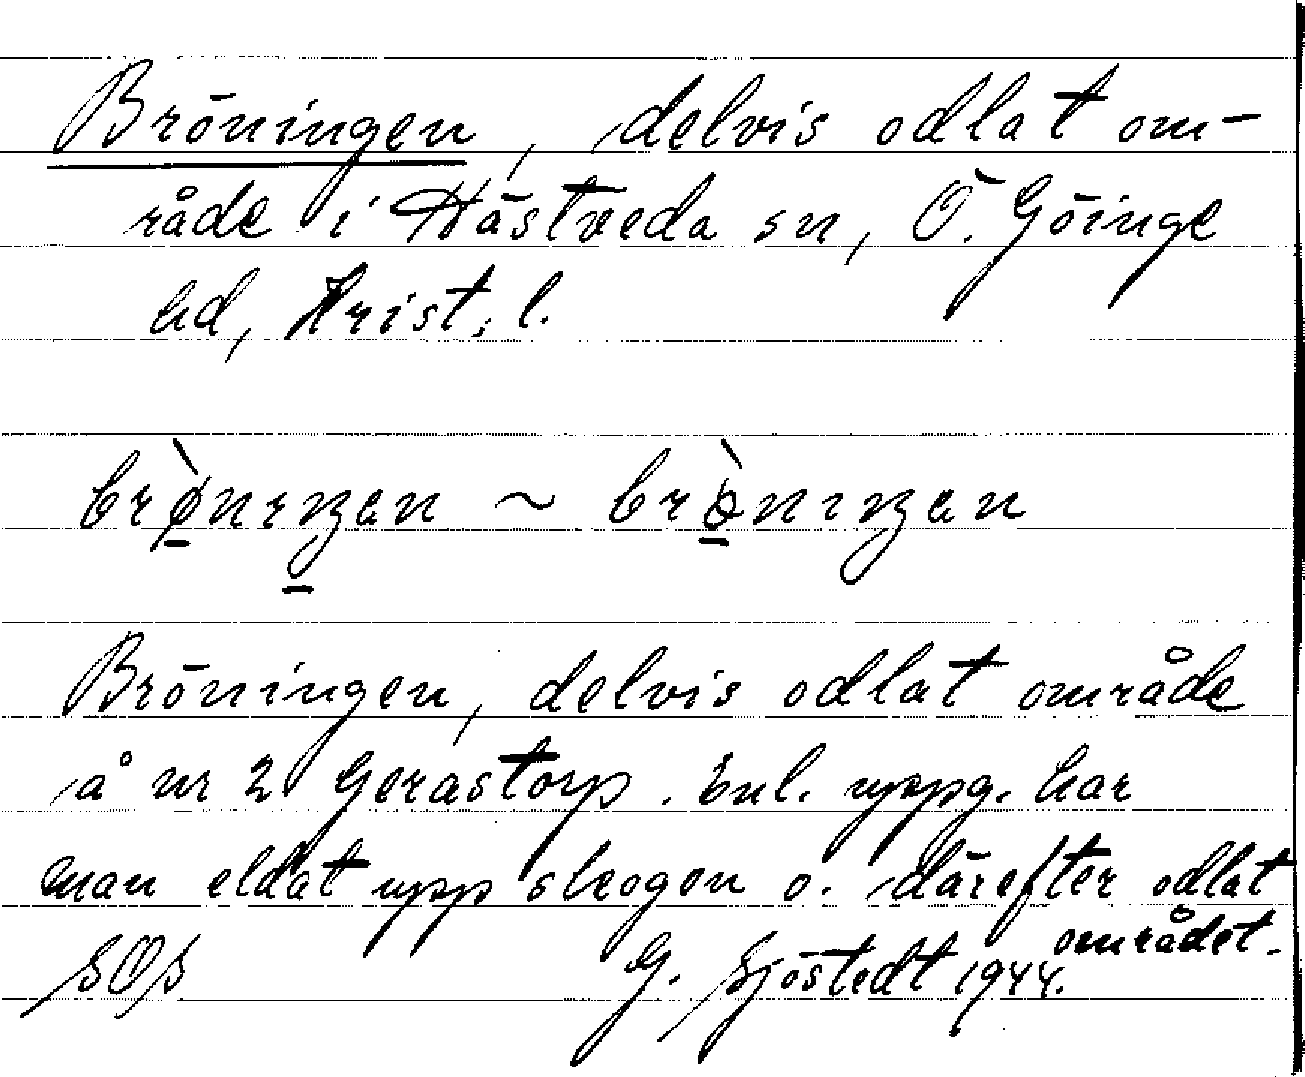 Bröningen, delvis odlat om-
råde i Hästveda sn, Ö. Göinge
hd, Krist. l.
brø̀nıŋen ~ brònıŋen
Bröningen, delvis odlat område
å nr 2 Gerastorp. Enl. uppg. har
man eldat upp skogen o. därefter odlat
området.
SOS G. Sjöstedt 1944.